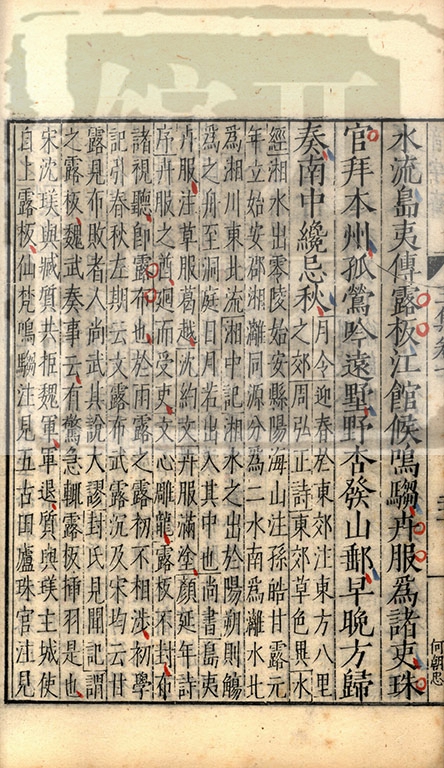 水流島夷傳露板江館候鳴騶卉服為諸吏珠
官拜本州孤鶯吟遠墅野杏發山郵早晚方歸
奏南中纔忌秋
月令迎春於東郊注東方八里
之郊周弘正詩東郊草色異水
經湘水出零陵始安縣陽海山注孫皓甘露元
年立始安郡湘灕同源分為二水南為灕水北
為湘川東北流湘中記湘水之出於陽朔則觴
為之舟至洞庭日月若出入其中也尚書島夷
卉服注草服葛越沈約文卉服滿塗顏延年詩
序卉服之酋廻而受吏文心雕龍露板不封布
諸視聽即露布也於雨露之露初不相涉初學
記引春秋左期云文露布武露沉及宋均云甘
露見布散者人尚武其說大謬封氏見聞記謂
之露板魏武奏事云有驚急輒露板插羽是也
宋沈璞與臧質共拒魏軍軍退質與璞主城使
自上露板仙梵鳴騶注見五古田廬珠官注見